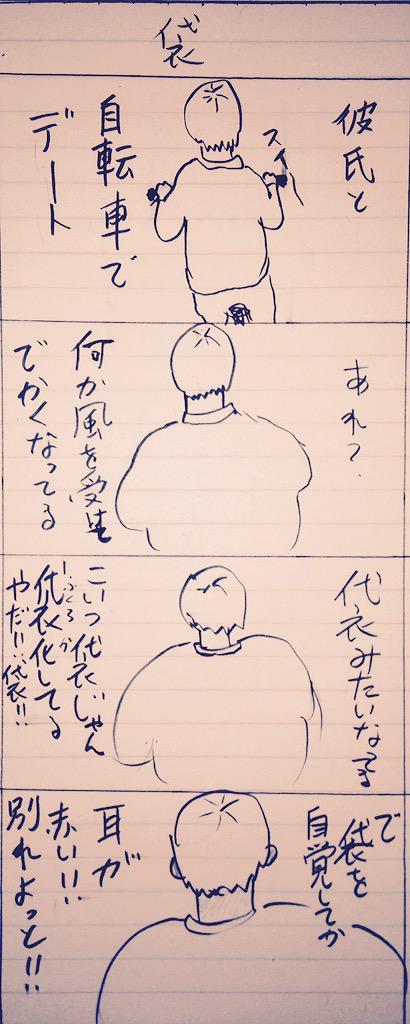 袋
彼氏と
スイー
自転車で
デート
あれ?
何か風を受けて
でかくなってる
袋みたいなってる
こいつ袋じゃん
ふくろか
袋化してる
やだ!!袋!!
で
袋を
自覚してか
耳が
赤い!!
別れよっと!!